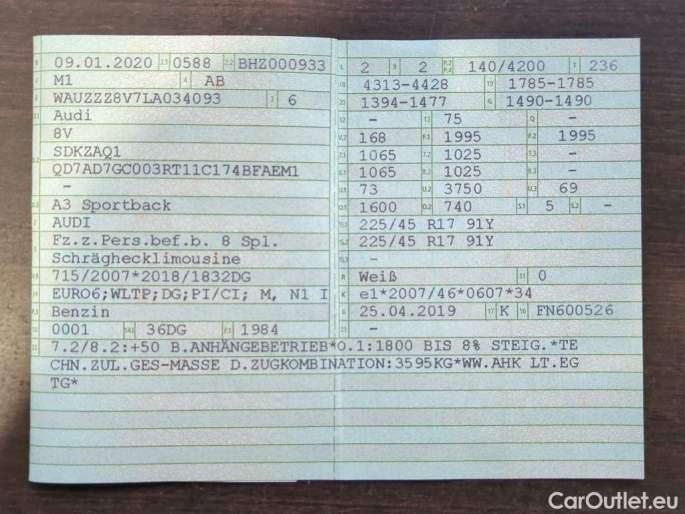 09.01.2020 0588 BHZ000933
M1 AB
WAUZZZ8V7LA034093 6
Audi
8V
SDKZAQ1
QD7AD7GC003RT11C174BFAEM1
-
A3 Sportback
AUDI
Fz.z.Pers.bef.b. 8 Spl.
Schräghecklimousine
715/2007*2018/1832DG
EURO6;WLTP;DG;PI/CI; M, N1 I
Benzin
0001 36DG 1984
7.2/8.2:+50 B.ANHÄNGEBETRIEB*O.1:1800 BIS 8% STEIG.*TE
CHN.ZUL.GES-MASSE D.ZUGKOMBINATION:3595KG*WW.AHK LT.EG
TG*
2 2 140/4200 236
4313-4428 1785-1785
1394-1477 1490-1490
- 75 -
168 1995 1995
1065 1025 -
1065 1025 -
73 3750 69
1600 740 5 -
225/45 R17 91Y
225/45 R17 91Y
-
Weiß 0
e1*2007/46*0607*34
25.04.2019 K FN600526
-
CarOutlet.eu